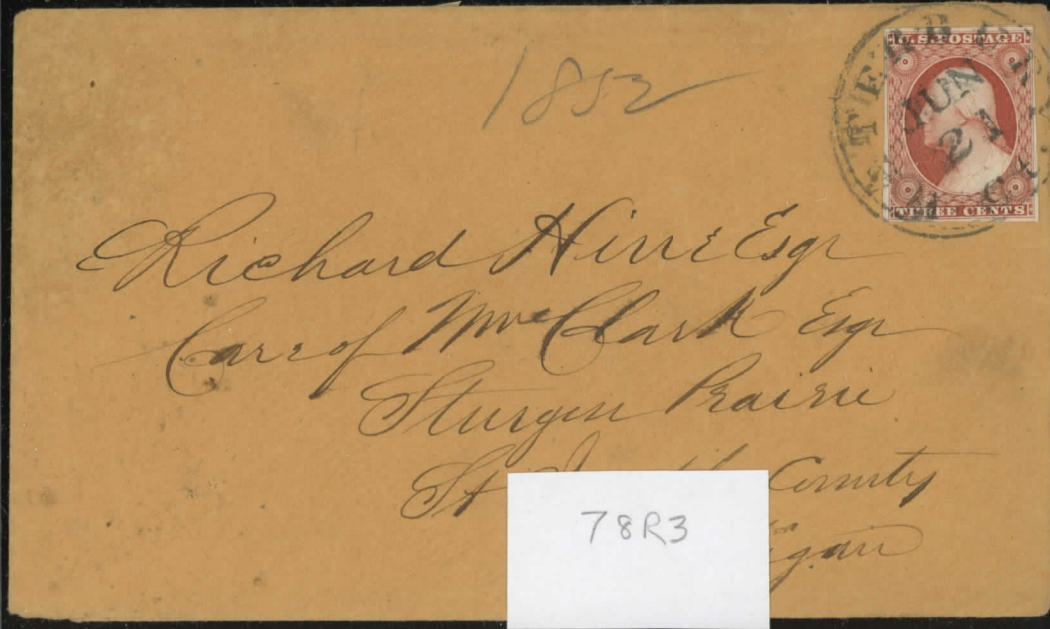 1852
U.S. POSTAGE
THREE CENTS
WATERBURY
JUN
2
Richard Hine Esqr
Care of Wm Clark Esqr
Sturgen Prairie
St County
igan
78R3